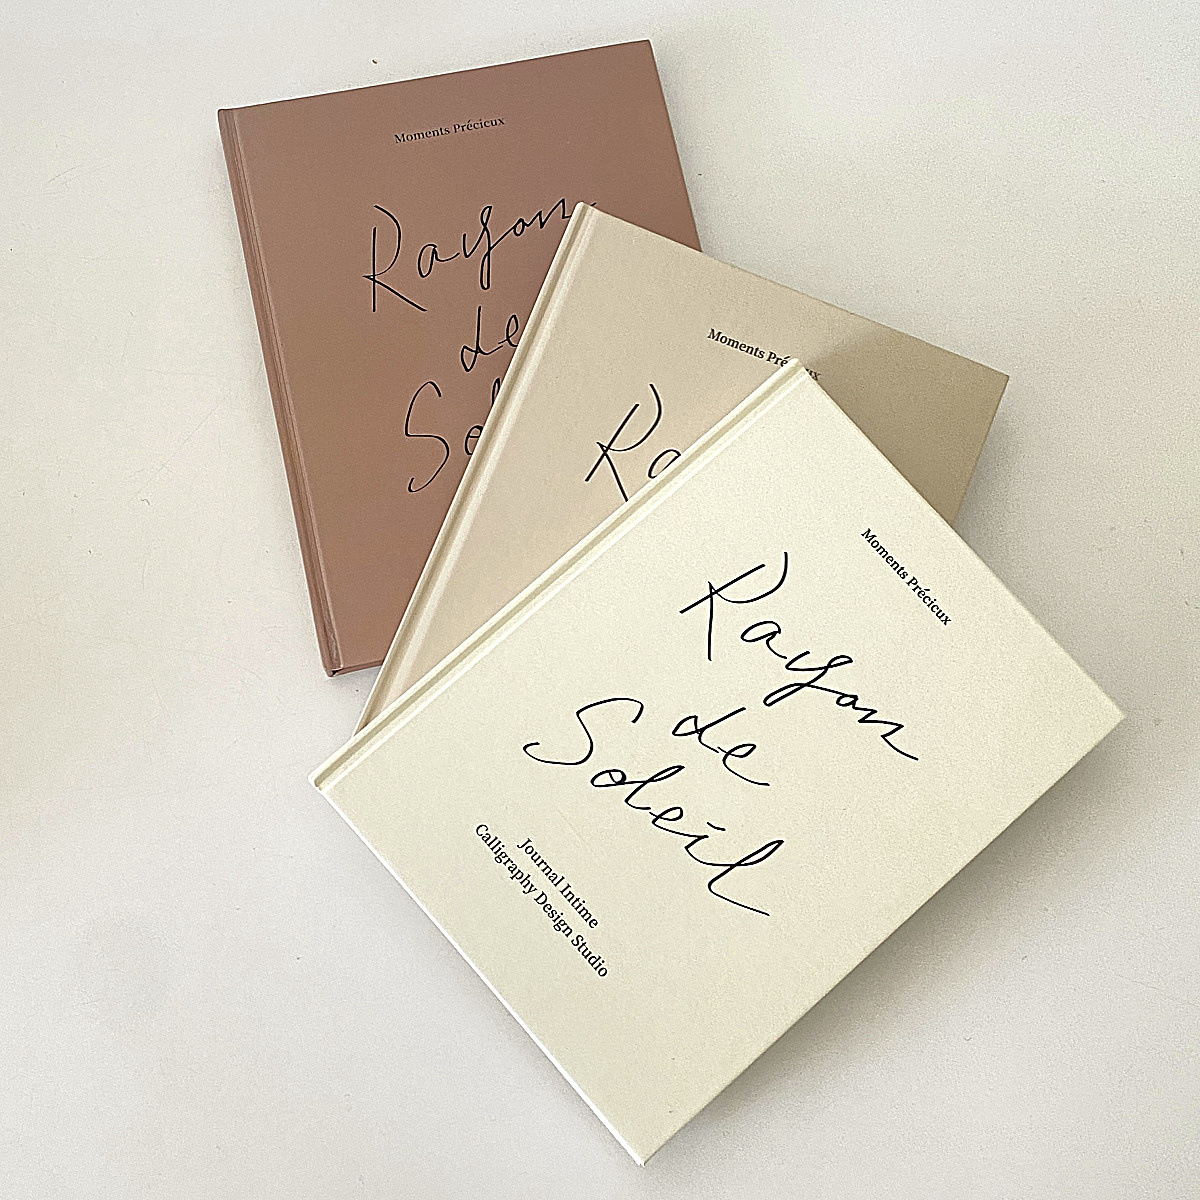 Moments Précicux
Rayon
de
So
Moments Pré ux
Ra
Moments Précicux
Rayon
de
Soleil
Journal Intime
Calligraphy Design Studio